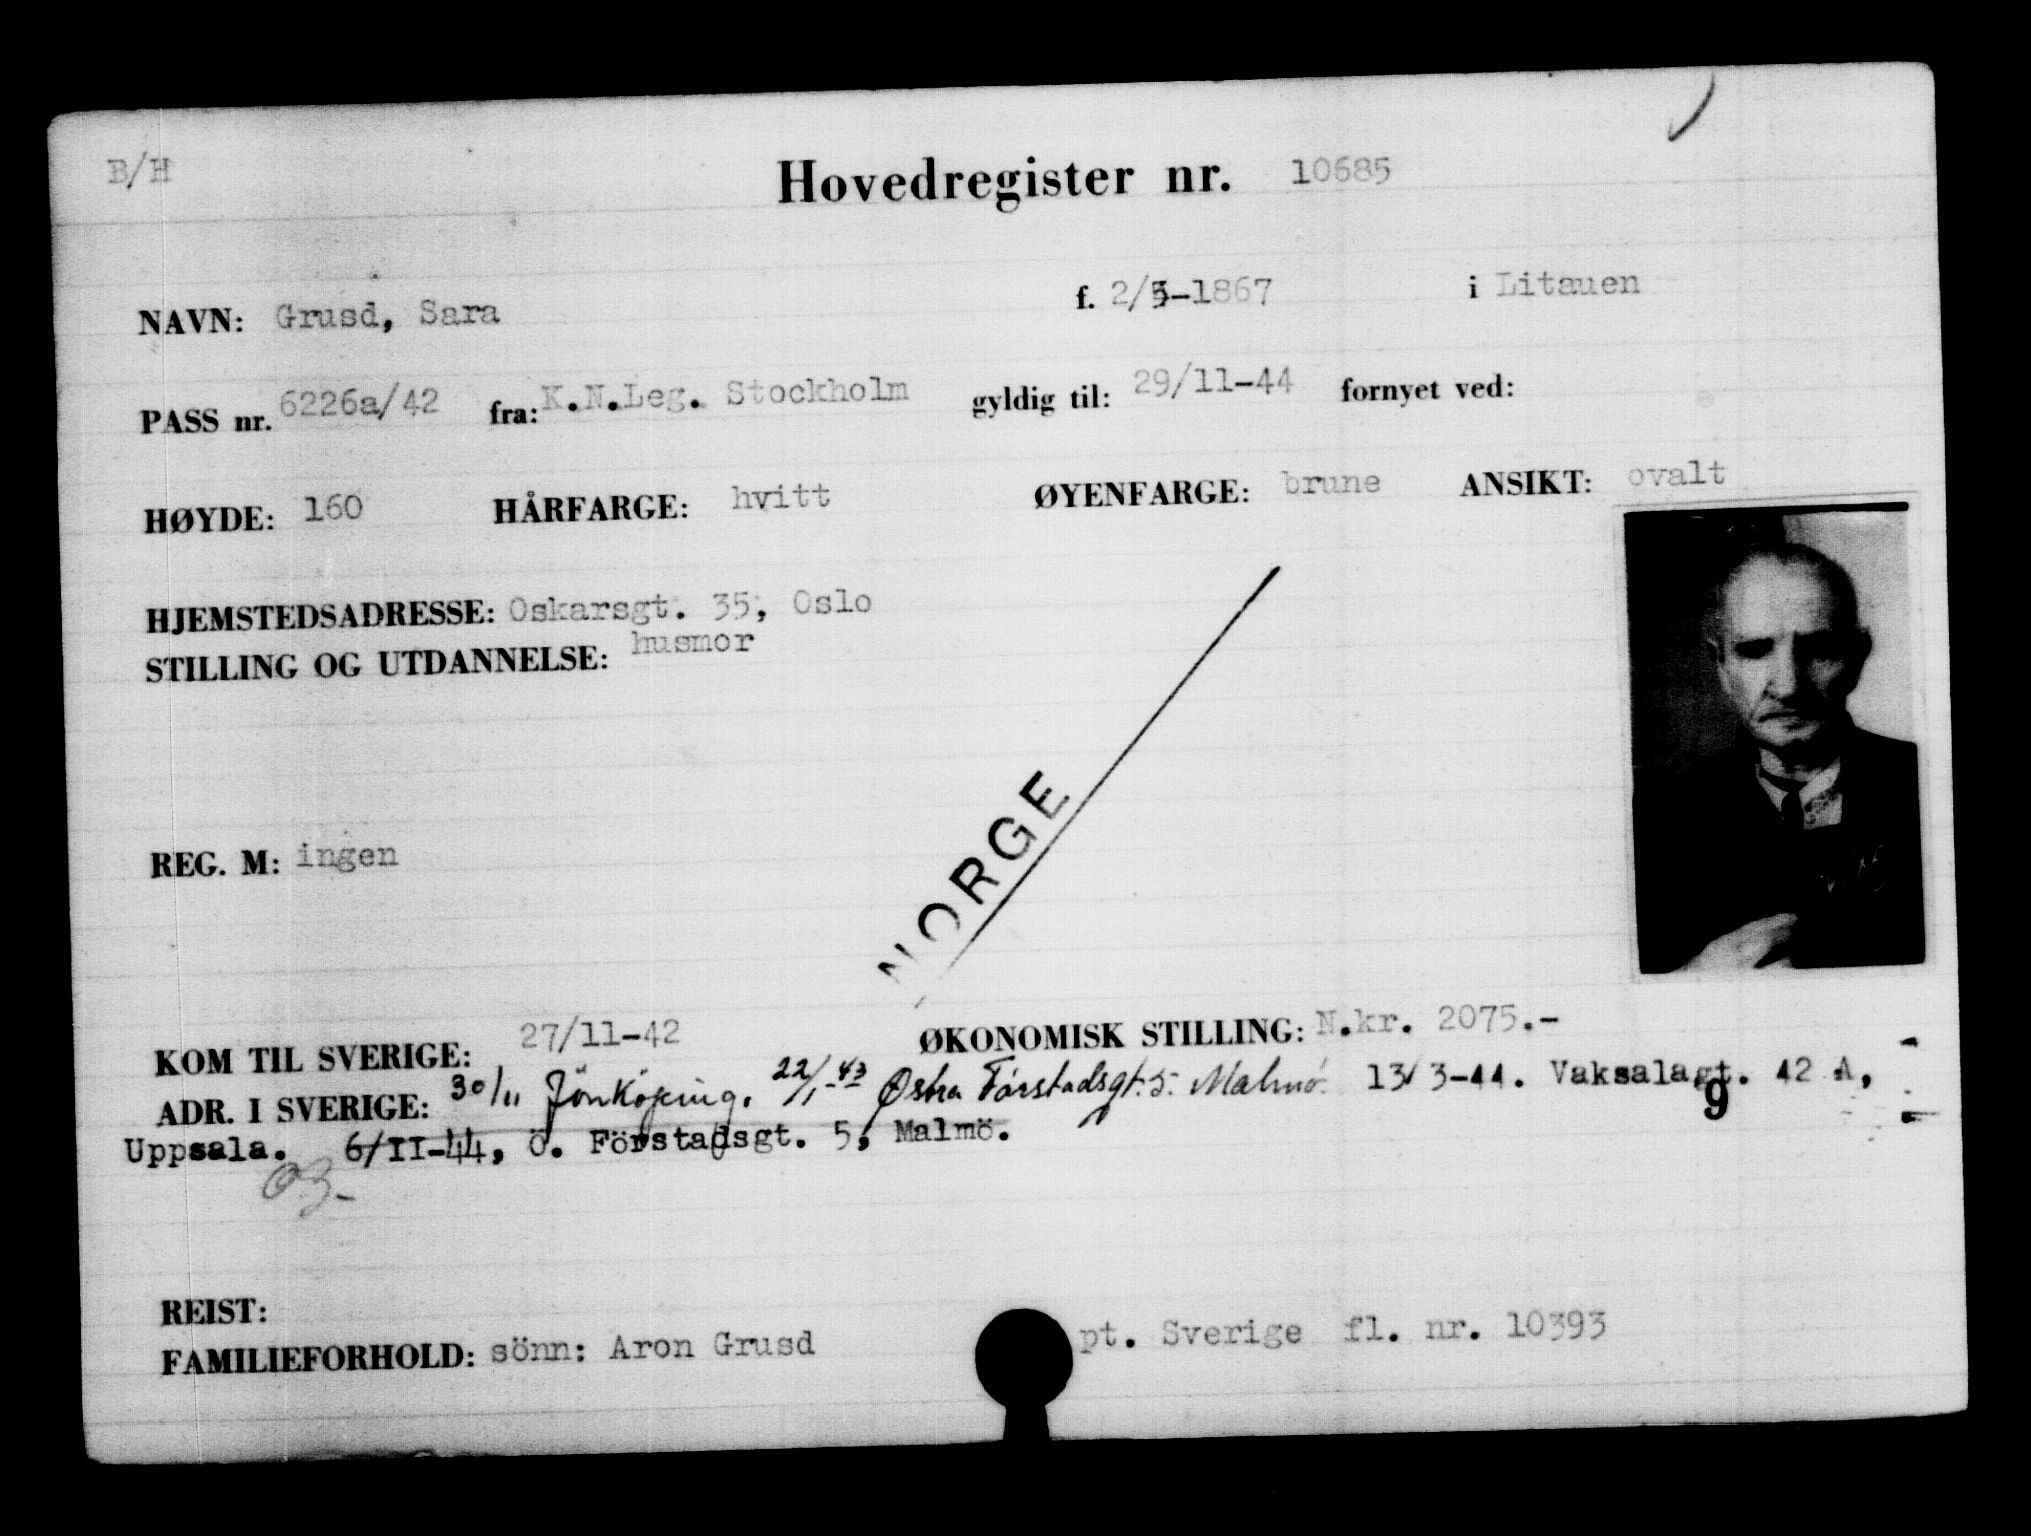 B/H
Hovedregister nr. 10685
NAVN: Grusd, Sara f. 2/5-1867 i Litauen
PASS nr. 6226a/42 fra: K.N.Leg. Stockholm gyldig til: 29/11-44 fornyet ved:
HØYDE: 160 HÅRFARGE: hvitt ØYENFARGE: brune ANSIKT: ovalt
HJEMSTEDSADRESSE: Oskarsgt. 35, Oslo
STILLING OG UTDANNELSE: husmor
REG. M: ingen
NORGE
KOM TIL SVERIGE: 27/11-42 ØKONOMISK STILLING: N.kr. 2075.-
ADR. I SVERIGE: 30/11 Jönköping. 22/1-43 Østra Förstadsgt. 5. Malmö. 13/3-44. Vaksalagt. 42 A,
9
Uppsala. 6/II-44, Ö. Förstadsgt. 5, Malmö.
REIST:
FAMILIEFORHOLD: sönn: Aron Grusd pt. Sverige fl. nr. 10393